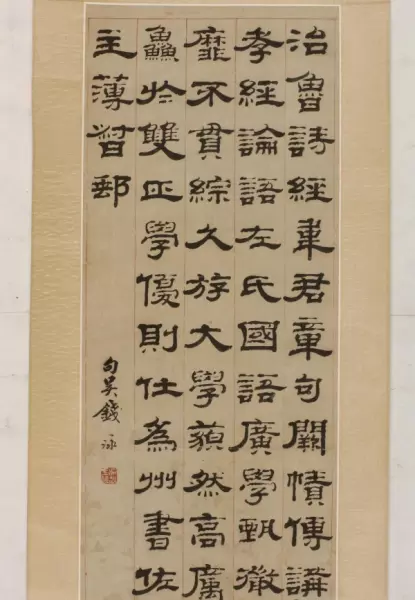 治魯詩經韋君章句闕幘傳講
孝經論語左氏國語廣學甄微
靡不貫綜久斿大學藐然高厲
鱻於雙匹學優則仕為州書佐
主薄督郵
句吳錢泳